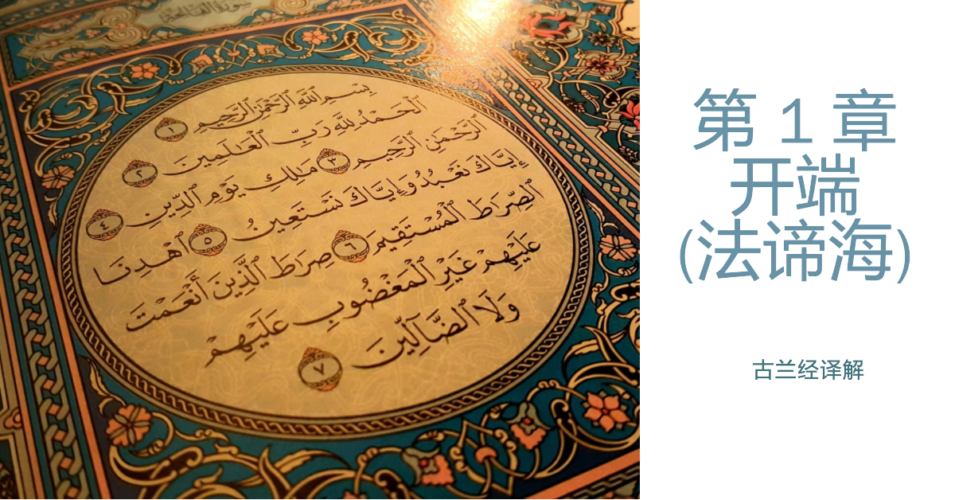 بِسْمِ ٱللَّهِ ٱلرَّحْمَٰنِ ٱلرَّحِيمِ ١
ٱلْحَمْدُ لِلَّهِ رَبِّ ٱلْعَٰلَمِينَ ٢
ٱلرَّحْمَٰنِ ٱلرَّحِيمِ ٣ مَٰلِكِ يَوْمِ ٱلدِّينِ ٤
إِيَّاكَ نَعْبُدُ وَإِيَّاكَ نَسْتَعِينُ ٥ ٱهْدِنَا
ٱلصِّرَٰطَ ٱلْمُسْتَقِيمَ ٦ صِرَٰطَ ٱلَّذِينَ أَنْعَمْتَ
عَلَيْهِمْ غَيْرِ ٱلْمَغْضُوبِ عَلَيْهِمْ
وَلَا ٱلضَّآلِّينَ ٧
第 1 章
开端
(法谛海)
古兰经译解